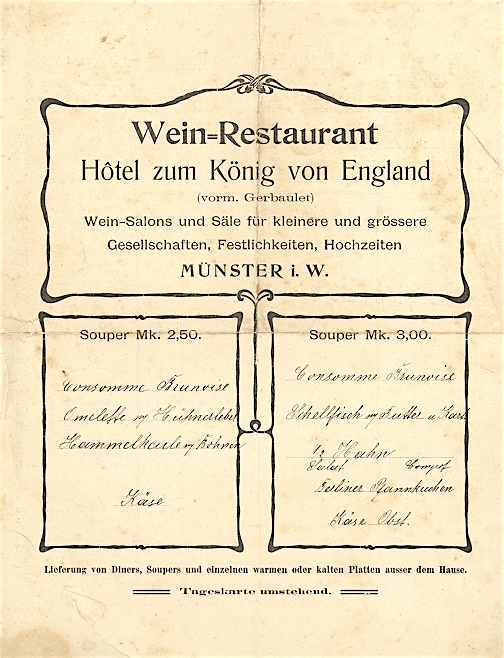 Wein=Restaurant
Hôtel zum König von England
(vorm. Gerbaulet)
Wein-Salons und Säle für kleinere und grössere
Gesellschaften, Festlichkeiten, Hochzeiten
MÜNSTER i. W.
Souper Mk. 2,50.
Consomme Brunoise
Omelette Hühnerleber
Hammelkeule Bohnen
Käse
Souper Mk. 3,00.
Consomme Brunoise
Schellfisch Butter u Kart
Hahn
Salat Compot
Berliner Pfannkuchen
Käse Obst.
Lieferung von Diners, Soupers und einzelnen warmen oder kalten Platten ausser dem Hause.
Tageskarte umstehend.